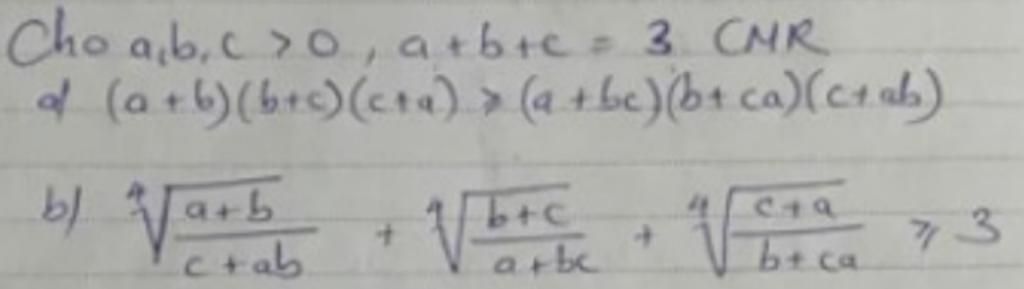 Cho a,b,c > 0, a+b+c = 3 CMR
a/ (a+b)(b+c)(c+a) ≥ (a+bc)(b+ca)(c+ab)
b/ ∜((a+b)/(c+ab)) + ∜((b+c)/(a+bc)) + ∜((c+a)/(b+ca)) ≥ 3